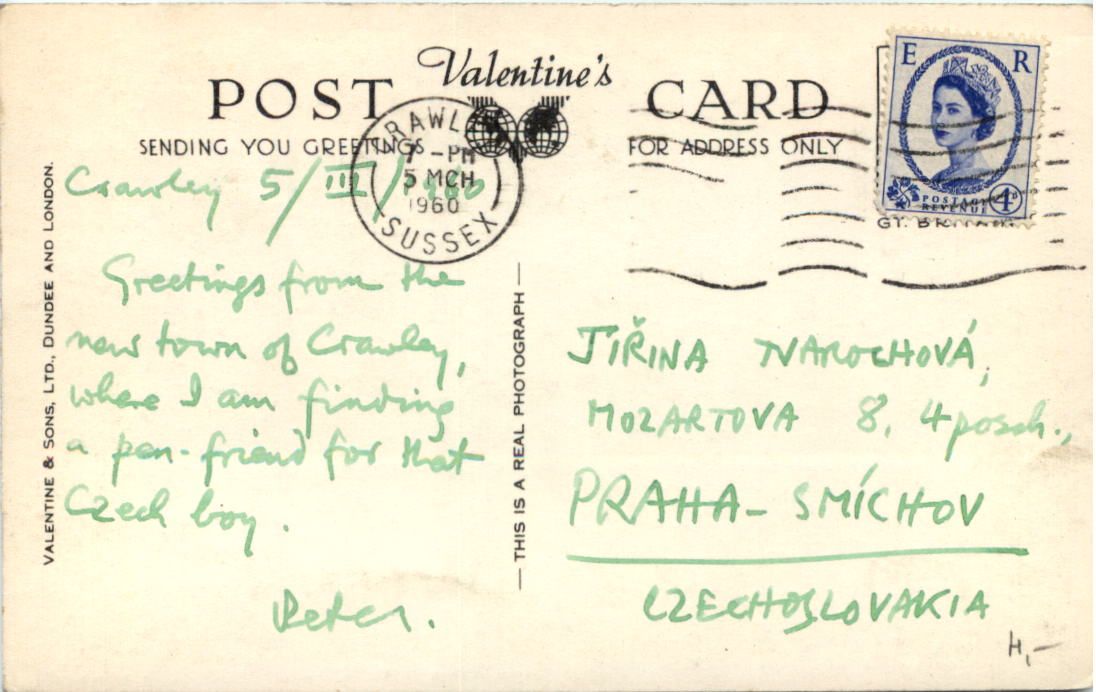 POST Valentine's CARD
SENDING YOU GREETINGS
FOR ADDRESS ONLY
CRAWLEY
7 - PM
5 MCH
1960
SUSSEX
E R
POSTAGE
REVENUE
4D
GT. BRITAIN
VALENTINE & SONS, LTD., DUNDEE AND LONDON.
Crawley 5/III/1960
Greetings from the
new town of Crawley,
where I am finding
a pen-friend for that
Czech boy.
Peter.
— THIS IS A REAL PHOTOGRAPH —
JIŘINA TVAROCHOVÁ,
MOZARTOVA 8, 4 posch.,
PRAHA - SMÍCHOV
CZECHOSLOVAKIA
H,-